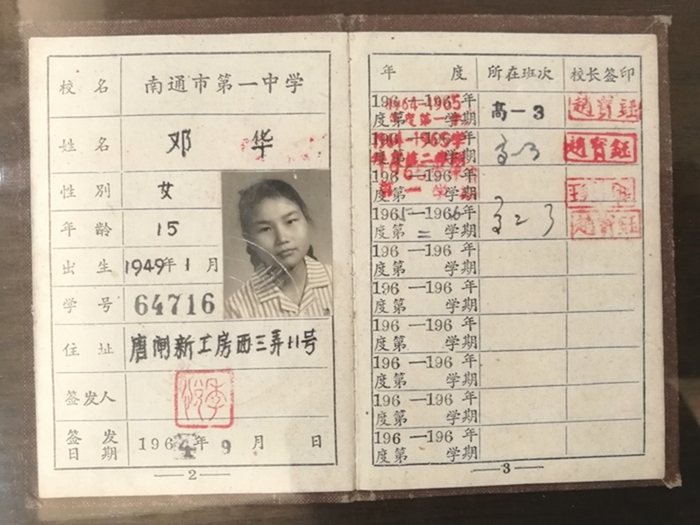 校名 南通市第一中学
姓名 邓华
性别 女
年龄 15
出生 1949年1月
学号 64716
住址 唐闸新工房西三弄11号
签发人
签发日期 1964年9月 日
2
年度 所在班次 校长签印
1964-1965年度第一学期 高一3 赵宝钰
1964-1965学年度第二学期 高一3
196 —196 年度第一学期
1965—1966年度第二学期 高二3
196 —196 年度第 学期
196 —196 年度第 学期
196 —196 年度第 学期
196 —196 年度第 学期
196 —196 年度第 学期
196 —196 年度第 学期
3